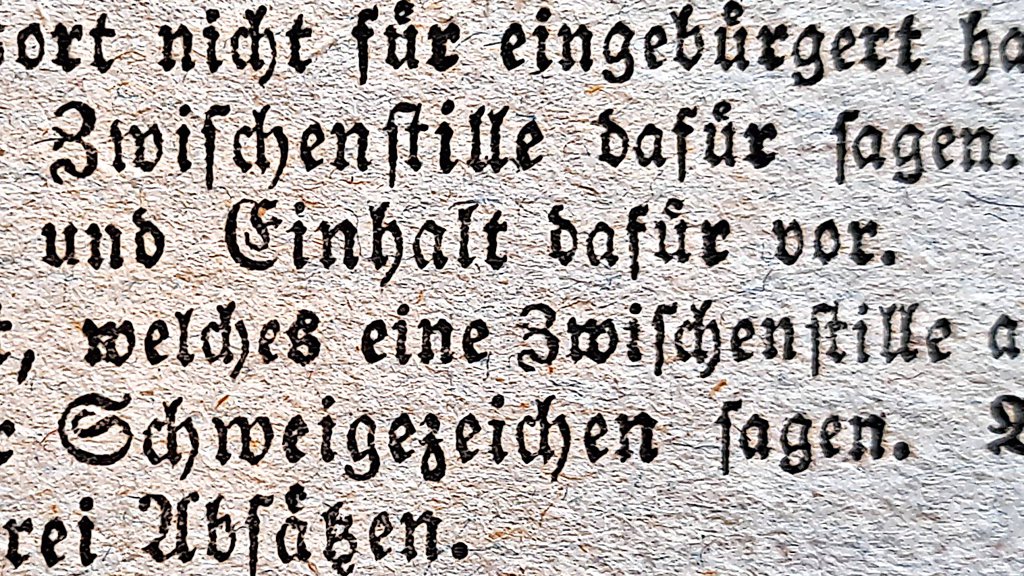 ort nicht für eingebürgert ha
Zwischenstille dafür sagen.
und Einhalt dafür vor.
t, welches eine Zwischenstille a
Schweigezeichen sagen.
rei Absätzen.